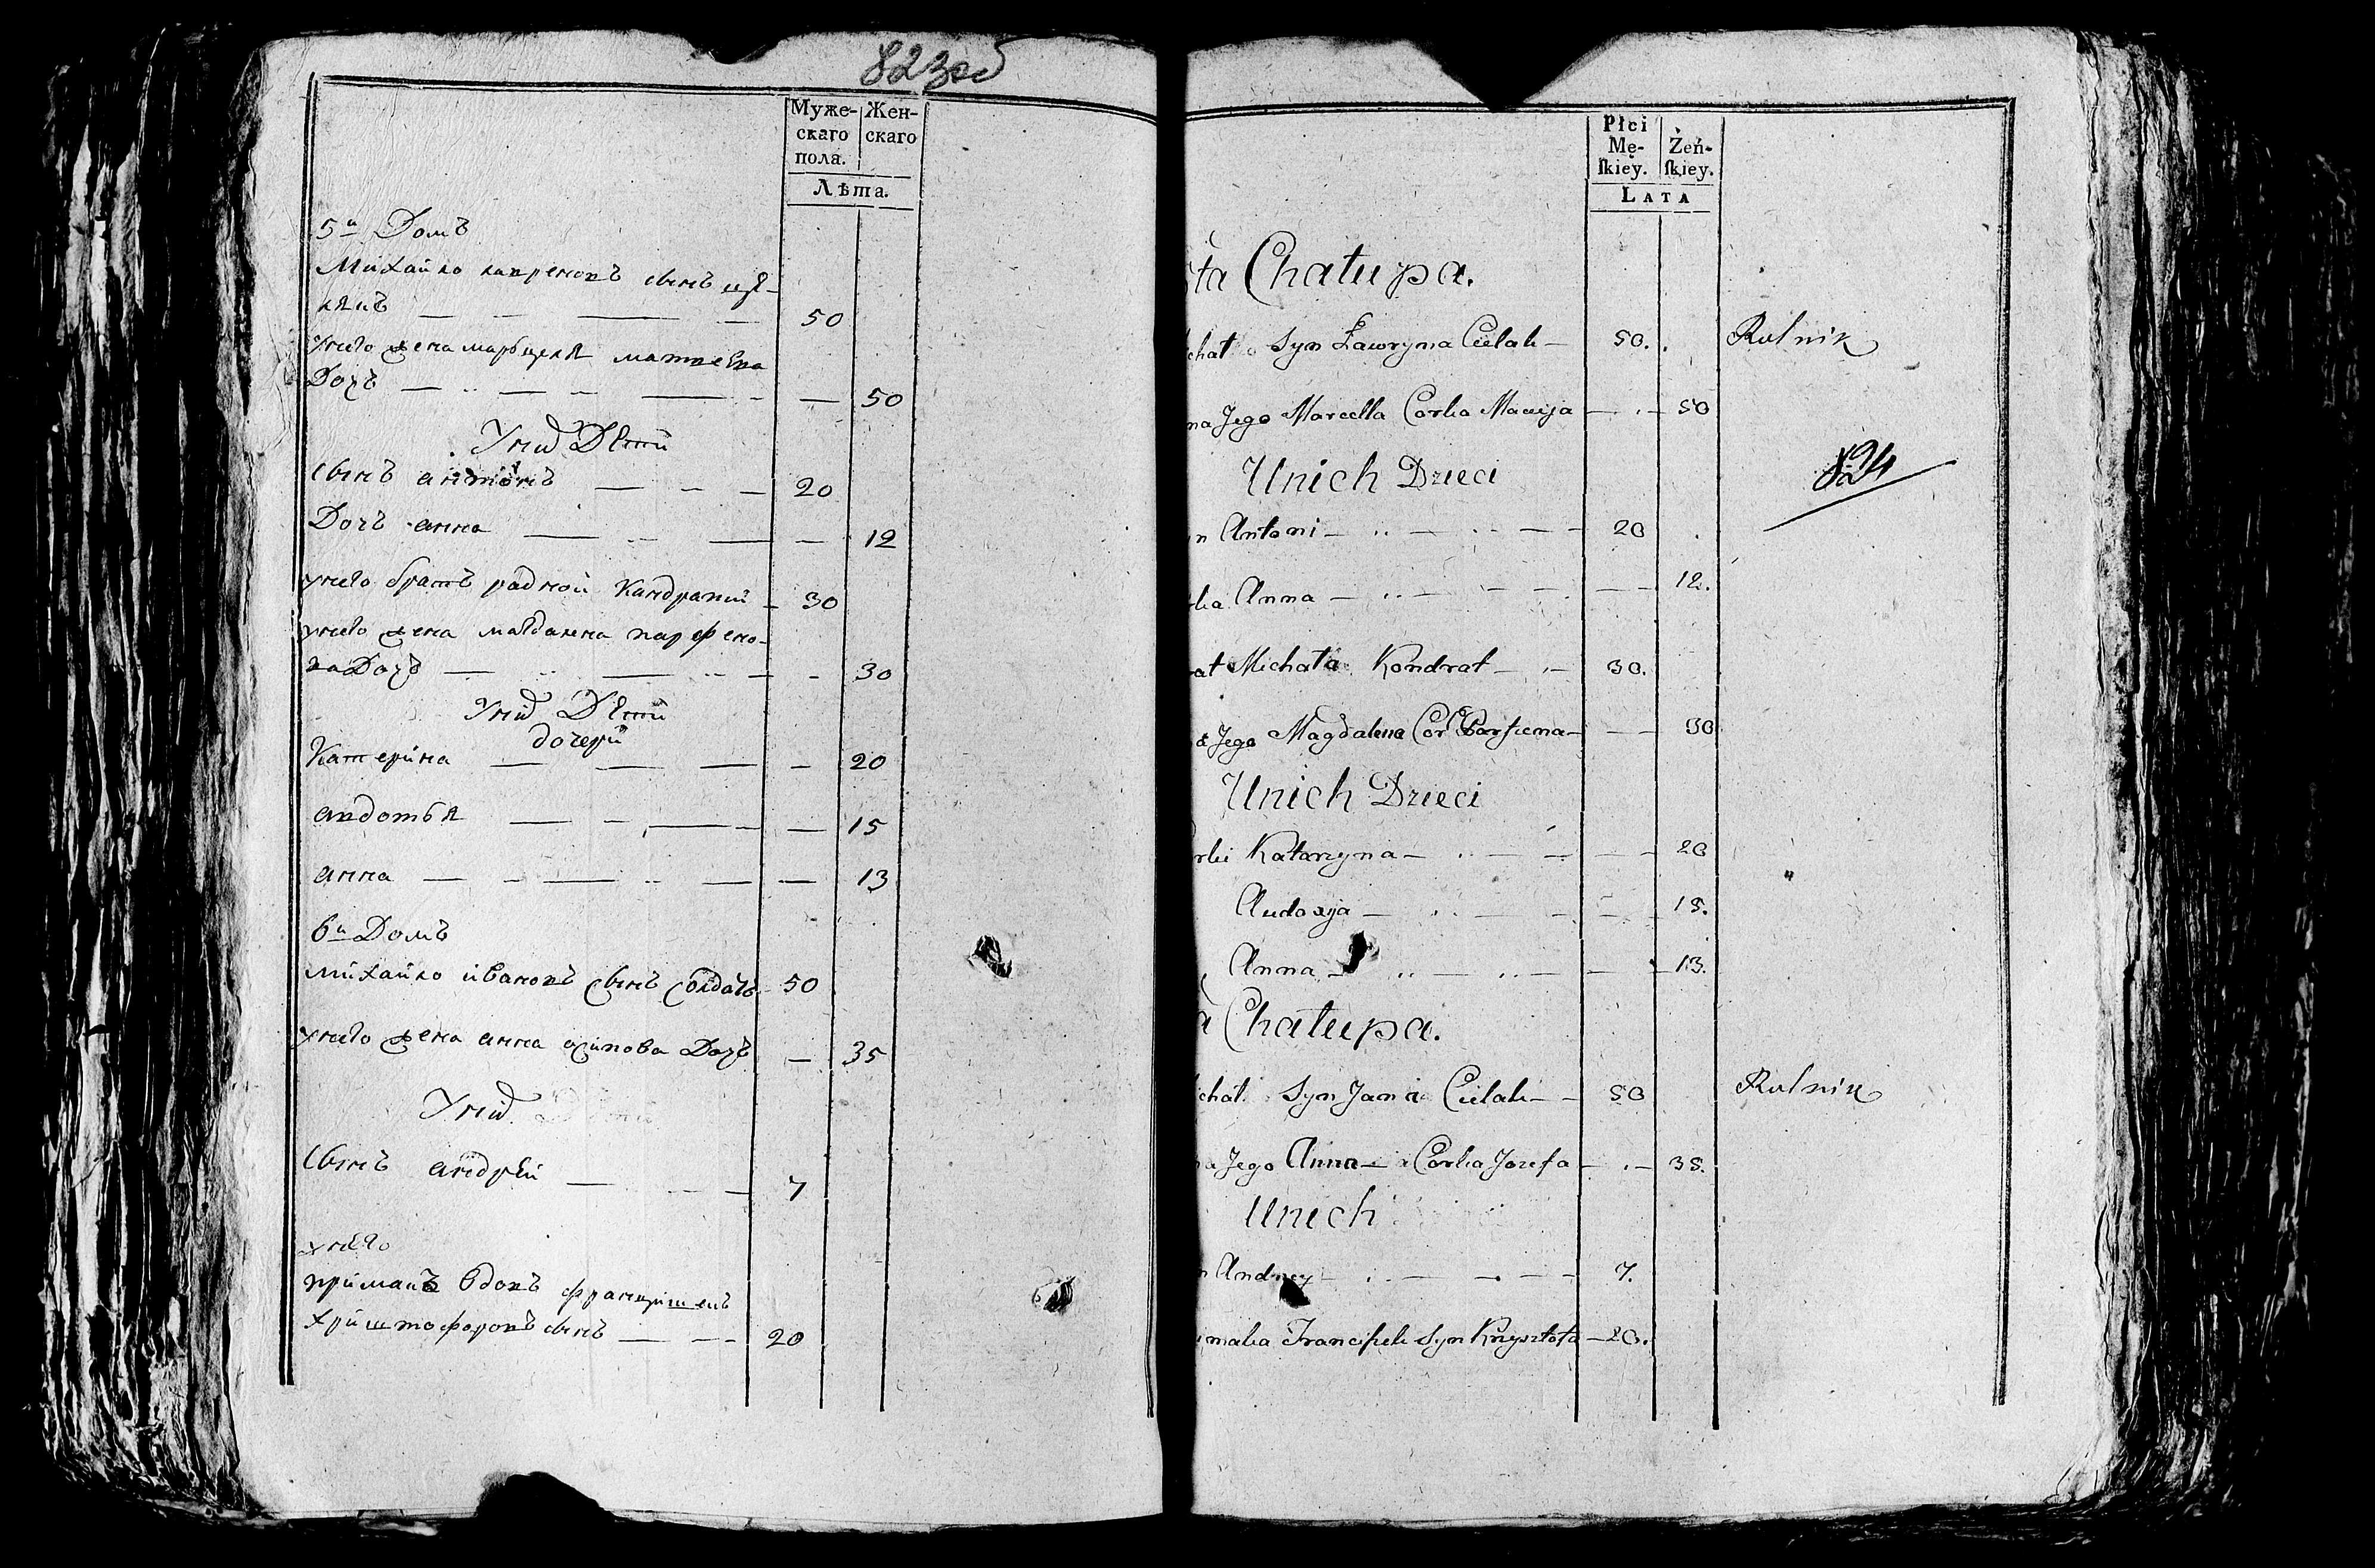 823об
Муже-
скаго
пола.
Жен-
скаго
Лѣта.
5й Домъ
Михайло лавреновъ сынъ цѣ-
лякъ — — — — 50
унего жена марьцеля матвеева
Дочъ — — — — — 50
Унид Дѣти
сынъ антонъ — — — 20
Дочъ анна — — — — 12
унего братъ радной Кандратий — 30
унего жена магдалена парфено-
ва Дочъ — — — — — 30
Унид Дѣти
дочери
Катерина — — — — 20
авдотья — — — — 15
анна — — — — — 13
6й Домъ
михайло ивановъ сынъ солдатъ — 50
унего жена анна осипова Дочъ — 35
Унид
сынъ андрѣй — — — 7
унего
приманъ вдовъ францишекъ
хриштофоровъ сынъ — — 20
Płci
Mę-
ſkiey.
Żeń-
ſkiey.
LATA
ta Chałupa.
chał Syn Ławryna Cielak — 50. Rolnik
na Jego Marcella Corka Macieja — . — 50
824
Unich Dzieci
n Antoni — .. — .. — — 20
ka Anna — .. — — — — 12.
at Michała Kondrat — .. — 30.
a Jego Magdalena Cor Parfiena — — 30
Unich Dzieci
rki Katarzyna — .. — — — 20
Audoxija — .. — — — 15.
Anna — .. — .. — — 13.
a Chałupa.
chał Syn Jana Cielak — 50 Rolnik
a Jego Anna — Corka Jozefa — . — 35.
Unich
n Andrzey — . — — — 7.
maka Franciſzek Syn Krzysztofa — 20.